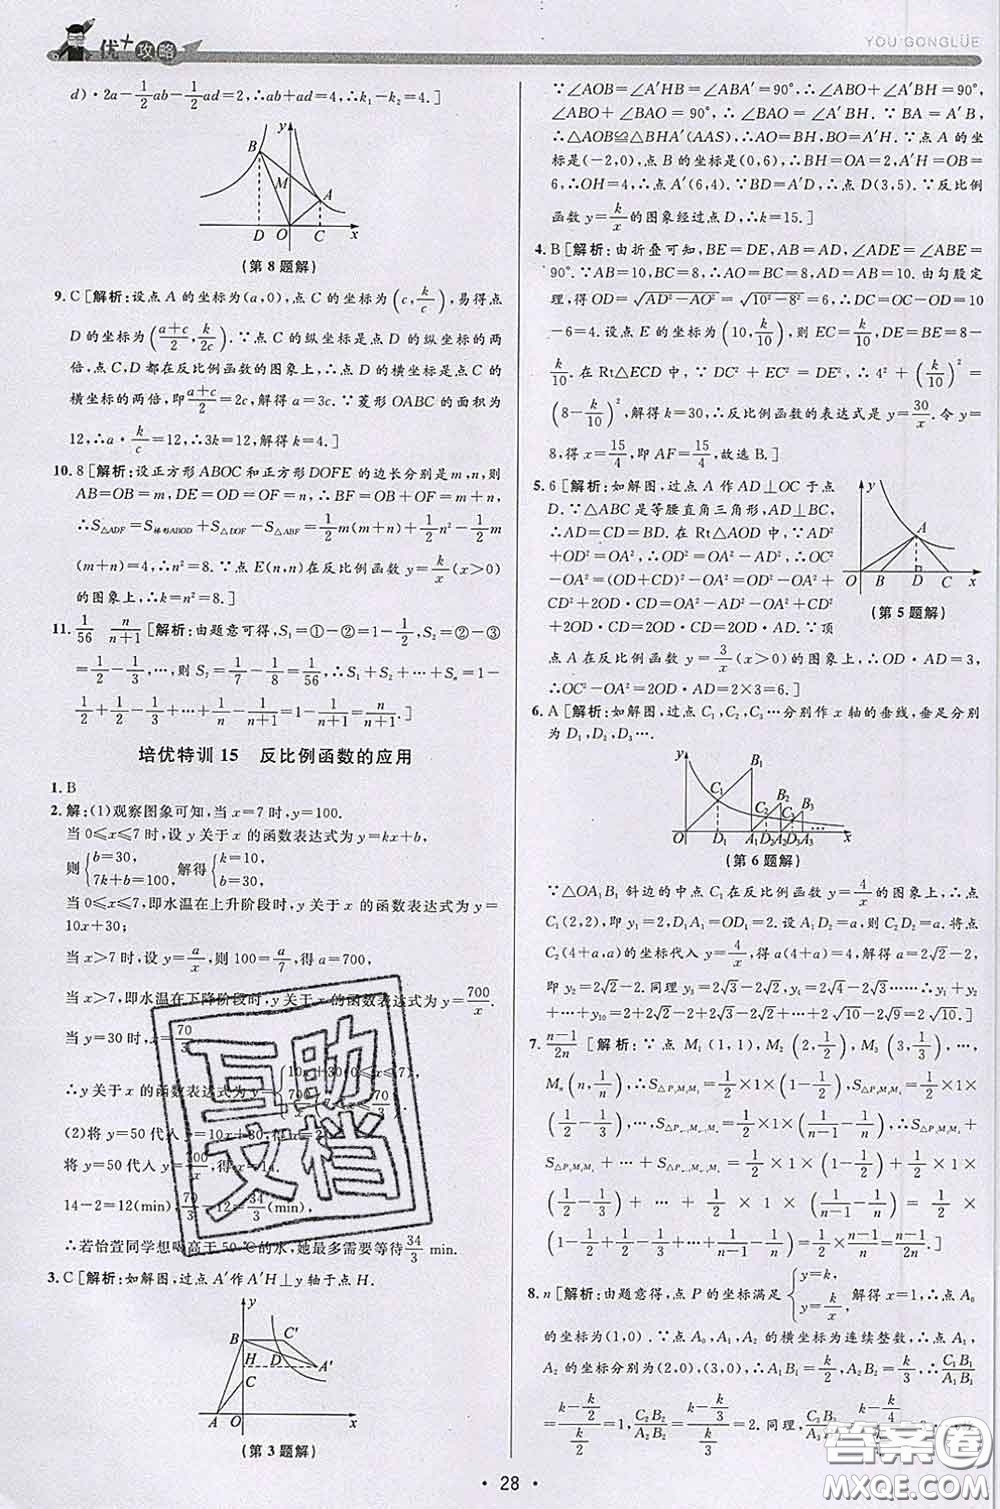 优+攻略
YOU GONGLÜE
d)·2a-1/2ab-1/2ad=2,∴ab+ad=4,∴k₁-k₂=4.]
y
B
M
A
D O C x
(第8题解)
9. C [解析:设点A的坐标为(a,0),点C的坐标为(c,k/c),易得
点D的坐标为((a+c)/2,k/2c).∵点C的纵坐标是点D的纵坐标的两
倍,点C,D都在反比例函数的图象上,∴点D的横坐标是点C的
横坐标的两倍,即(a+c)/2=2c,解得a=3c.∵菱形OABC的面积为
12,∴a·k/c=12,∴3k=12,解得k=4.]
10. 8 [解析:设正方形ABOC和正方形DOFE的边长分别是m,n,则
AB=OB=m,DE=OD=OF=n,∴BF=OB+OF=m+n,
∴S△ADF=S梯形ABOD+S△DOF-S△ABF=1/2m(m+n)+1/2n²-1/2m
(m+n)=4,∴n²=8.∵点E(n,n)在反比例函数y=k/x(x>0)
的图象上,∴k=n²=8.]
11. 1/56 n/(n+1) [解析:由题意可得,S₁=①-②=1-1/2,S₂=②-③
=1/2-1/3,…,则S₇=1/7-1/8=1/56,∴S₁+S₂+…+Sₙ=1-
1/2+1/2-1/3+…+1/n-1/(n+1)=1-1/(n+1)=n/(n+1).]
培优特训15 反比例函数的应用
1. B
2. 解:(1)观察图象可知,当x=7时,y=100.
当0≤x≤7时,设y关于x的函数表达式为y=kx+b,
则{b=30, 7k+b=100, 解得{b=30, k=10,
当0≤x≤7时,即水温在上升阶段时,y关于x的函数表达式为y=
10x+30;
当x>7时,设y=a/x,则100=a/7,解得a=700,
当x>7,即水温在下降阶段时,y关于x的函数表达式为y=700/x.
当y=30时,x=70/3,
∴y关于x的函数表达式为y={10x+30(0≤x≤7), 700/x
(2)将y=50代入y=10x+30,得x=2,
将y=50代入y=700/x,得x=14.
14-2=12(min),70/3-12=34/3(min),
∴若怡萱同学想喝高于50 ℃的水,她最多需要等待34/3 min.
3. C [解析:如解图,过点A′作A′H⊥y轴于点H.
y
B C′
H D A′
C
A O x
(第3题解)
∵∠AOB=∠A′HB=∠ABA′=90°,∴∠ABO+∠A′BH=90°,
∠ABO+∠BAO=90°,∴∠BAO=∠A′BH.∵BA=A′B,
∴△AOB≌△BHA′(AAS),∴AO=BH,BO=A′H.∵点A的坐
标是(-2,0),点B的坐标是(0,6),∴BH=OA=2,A′H=OB=
6,∴OH=4,∴点A′(6,4).∵BD=A′D,∴点D(3,5).∵反比例
函数y=k/x的图象经过点D,∴k=15.]
4. B [解析:由折叠可知,BE=DE,AB=AD,∠ADE=∠ABE=
90°.∵AB=10,BC=8,∴AO=BC=8,AD=10.由勾股定理,
得OD=√(AD²-AO²)=√(10²-8²)=6,∴DC=OC-OD=10
-6=4.设点E的坐标为(10,k/10),则EC=k/10,DE=BE=8-
k/10.在Rt△ECD中,∵DC²+EC²=DE²,∴4²+(k/10)²=
(8-k/10)²,解得k=30,∴反比例函数的表达式是y=30/x.令y=
8,得x=15/4,即AF=15/4,故选B.]
5. 6 [解析:如解图,过点A作AD⊥OC于点
D.∵△ABC是等腰直角三角形,AD⊥BC,
∴BD=CD=AD.在Rt△AOD中,∵AD²
+OD²=OA²,∴OD²=OA²-CD²,∴
OC²-OA²=(OD+CD)²-OA²=OD²+
CD²+2OD·CD-OA²=OA²-CD²+
CD²+2OD·CD-OA²=2OD·AD.∵顶
点A在反比例函数y=3/x(x>0)图象上,∴OD·AD=3,
∴OC²-OA²=2OD·AD=2×3=6.]
y
A
O B D C x
(第5题解)
6. A [解析:如解图,过点C₁,C₂,C₃…分别作x轴的垂线,垂足分别
为D₁,D₂,D₃….
y
B₁
C₁
B₂
B₃
O D₁ A₁D₂A₂D₃A₃ … x
(第6题解)
∵△OA₁B₁斜边的中点C₁在反比例函数y=4/x的图象上,∴点
C₁(2,2),即y₁=2,D₁A₁=OD₁=2.设A₁D₂=a,则C₂D₂=a.将点
C₂(4+a,a)的坐标代入y=4/x,得a(4+a)=4,解得a=2√2-2,
即y₂=2√2-2.同理y₃=2√3-2√2,y₄=2√4-2√3……∴y₁+y₂
+…+y₁₀=2+2√2-2+2√3-2√2+…+2√10-2√9=2√10.]
7. (n-1)/2n [解析:∵点M₁(1,1),M₂(2,1/2),M₃(3,1/3),…,
Mₙ(n,1/n),∴S△P₁M₁M₂=1/2×1×(1-1/2),S△P₂M₂M₃=1/2×1×
(1/2-1/3),…,S△Pₙ₋₁Mₙ₋₁Mₙ=1/2×1×(1/(n-1)-1/n),∴S△P₁M₁M₂+
S△P₂M₂M₃+…+S△Pₙ₋₁Mₙ₋₁Mₙ=1/2×1×(1-1/2)+1/2×1×
(1/2-1/3)+…+1/2×1×(1/(n-1)-1/n)=1/2×(1-1/2+
1/2-1/3+…+1/(n-1)-1/n)=1/2×(n-1)/n=(n-1)/2n.]
8. n [解析:由题意得,点P的坐标满足{y=k, y=k/x, 解得x=1,∴点A₀
的坐标为(1,0).∵点A₀,A₁,A₂的横坐标为连续整数,∴点A₁,
A₂的坐标分别为(2,0),(3,0).∴A₁B₁=k/2,A₂B₂=k/3,∴C₁B₁/A₁B₁
=(k-k/2)/(k/2)=1,C₂B₂/A₂B₂=(k-k/3)/(k/3)=2.同理,
互助
文档
答案圈
MXQE.COM
· 28 ·